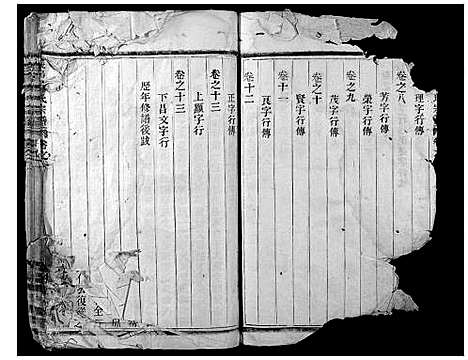 理字行傳
卷之八
芳字行傳
榮字行傳
卷之九
茂字行傳
卷之十
賢字行傳
卷十一
瓦字行傳
卷十二
正字行傳
卷之十三
上顯字行
卷之十三
下昌文字行
歷年修譜後跋